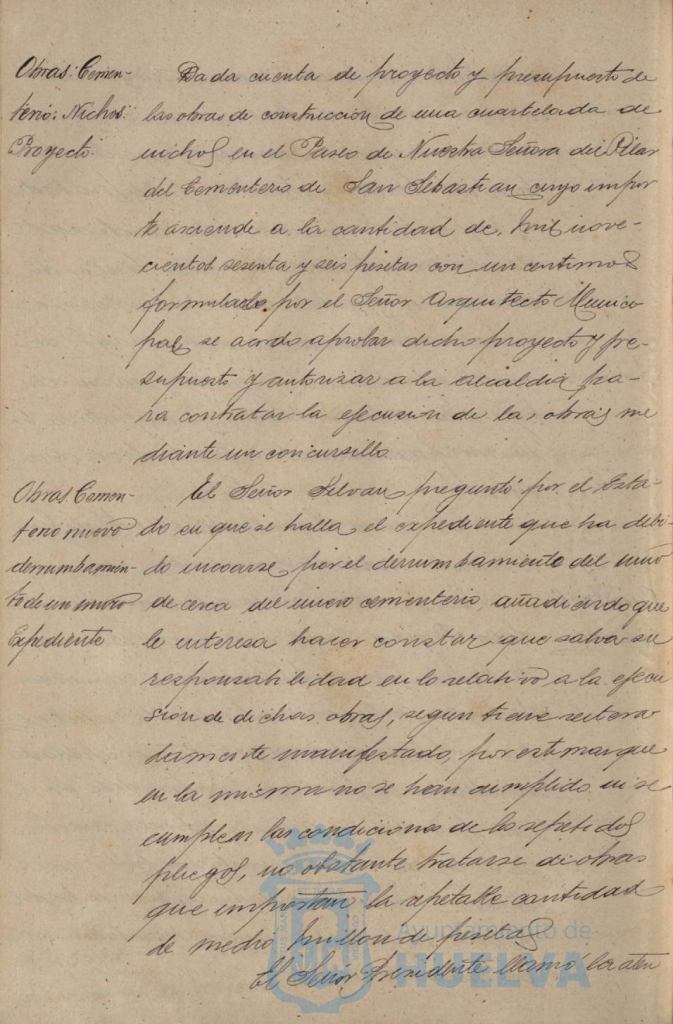 Obras: Cemen-
terio: Nichos:
Proyecto.
Dada cuenta de proyecto y presupuesto de
las obras de construccion de una cuartelada de
nichos en el Paseo de Nuestra Señora del Pilar
del Cementerio de San Sebastian cuyo impor
te asciende a la cantidad de, mil nove-
cientos sesenta y seis pesetas con un centimos
formulado por el Señor Arquitecto Munici
pal se acordo aprobar dicho proyecto y pre-
supuesto y autorizar a la alcaldia pa-
ra contratar la ejecusion de las obras me
diante un concursillo
Obras. Cemen-
terio nuevo
derrumbamien-
to de un muro
Expediente
El Señor Selvan preguntó por el Esta-
do en que se halla el expediente que ha debi-
do incoarse por el derrumbamiento del muro
de cerca del nuevo cementerio, añadiendo que
le interesa hacer constar que salva su
responsabilidad en lo relativo a la ejecu
sion de dichas obras, segun tiene reitera
damente manifestado, por estimar que
en la misma no se han cumplido ni se
cumplen las condiciones de los repetidos
pliegos, no obstante tratarse de obras
que importan la respetable cantidad
de medio millon de pesetas
El Señor Presidente llamó la aten
Ayuntamiento de
HUELVA